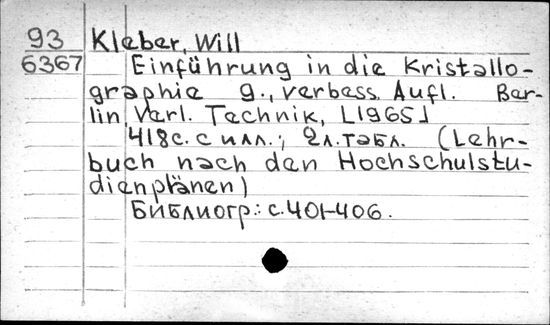 93 Kleber, Will
6367 Einführung in die Kristallo-
graphie 9., verbess. Aufl. Ber-
lin Verl. Technik, [1965]
418с. с илл.; 2л. табл. (Lehr-
buch nach den Hochschulstu-
dienplänen)
Библиогр.: с. 401-406.